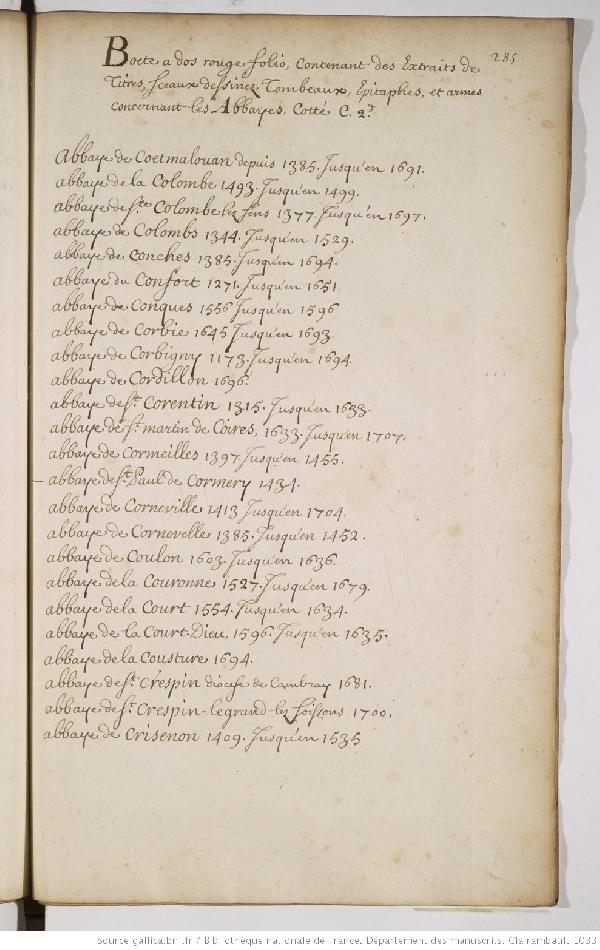 285.
Boete a dos rouge folio, contenant des Extraits de
Titres, sceaux dessinez, Tombeaux, Epitaphes, et armes
concernant les Abbayes. Cotté C. 2.d
Abbaye de Coetmalouan depuis 1385. Jusqu'en 1691.
abbaye de la Colombe 1493. Jusqu'en 1499.
abbaye de Ste Colombe lez Sens 1377. Jusqu'en 1697.
abbaye de Colombs 1344. Jusqu'en 1529.
abbaye de conches 1385. Jusqu'en 1694.
abbaye du Confort 1271. Jusqu'en 1651.
abbaye de Conques 1556 Jusqu'en 1596
abbaye de Corbie 1645 Jusqu'en 1693
abbaye de Corbigny 1173. Jusqu'en 1694.
abbaye de Cordillon 1696.
abbaye de St. Corentin 1315. Jusqu'en 1633.
abbaye de St. martin de Cores, 1633. Jusqu'en 1707.
abbaye de Cormeilles 1397. Jusqu'en 1455.
abbaye de St. Paul de Cormery 1434.
abbaye de Corneville 1413 Jusqu'en 1704.
abbaye de Cornevelle 1385. Jusqu'en 1452.
abbaye de Coulon 1603. Jusqu'en 1636.
abbaye de la Couronne 1527. Jusqu'en 1679.
abbaye de la Court 1554. Jusqu'en 1634.
abbaye de la Court-Dieu, 1596. Jusqu'en 1635.
abbaye de la Cousture 1694.
abbaye de St. Crespin diocese de Cambray 1681.
abbaye de St. Crespin-le grand-lez Soissons 1700.
abbaye de Crisenon 1409. Jusqu'en 1535
Source gallica.bnf.fr / Bibliothèque nationale de France. Département des manuscrits. Clairambault 1033